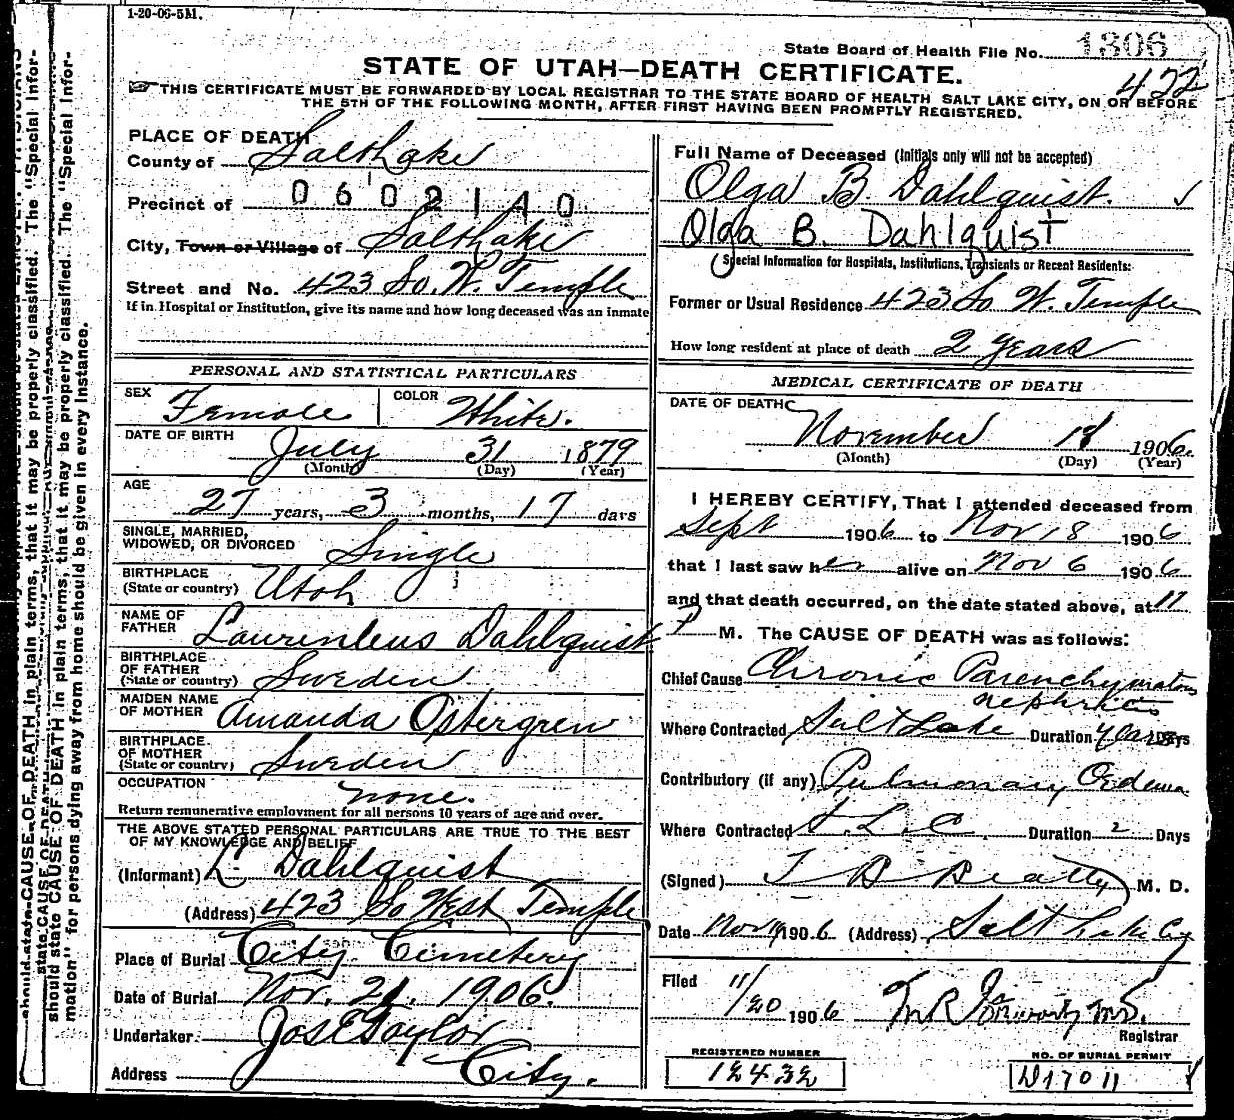 1-20-06-5M.
State Board of Health File No. 1306
422
STATE OF UTAH—DEATH CERTIFICATE.
THIS CERTIFICATE MUST BE FORWARDED BY LOCAL REGISTRAR TO THE STATE BOARD OF HEALTH SALT LAKE CITY, ON OR BEFORE
THE 5TH OF THE FOLLOWING MONTH, AFTER FIRST HAVING BEEN PROMPTLY REGISTERED.
PLACE OF DEATH
County of Salt Lake
Precinct of 0602140
City, Town or Village of Salt Lake
Street and No. 423 So. W. Temple
If in Hospital or Institution, give its name and how long deceased was an inmate
PERSONAL AND STATISTICAL PARTICULARS
SEX Female COLOR White.
DATE OF BIRTH July 31 1879
(Month) (Day) (Year)
AGE 27 years, 3 months, 17 days
SINGLE, MARRIED,
WIDOWED, OR DIVORCED Single
BIRTHPLACE
(State or country) Utah
NAME OF
FATHER Laurenteus Dahlquist
BIRTHPLACE
OF FATHER
(State or country) Sweden
MAIDEN NAME
OF MOTHER Amanda Ostergren
BIRTHPLACE
OF MOTHER
(State or country) Sweden
OCCUPATION none.
Return remunerative employment for all persons 10 years of age and over.
THE ABOVE STATED PERSONAL PARTICULARS ARE TRUE TO THE BEST
OF MY KNOWLEDGE AND BELIEF
(Informant) L. Dahlquist
(Address) 423 So West Temple
Place of Burial City Cemetery
Date of Burial Nov. 21. 1906.
Undertaker Jos E Taylor
Address City.
Full Name of Deceased (Initials only will not be accepted)
Olga B. Dahlquist.
Olga B. Dahlquist
Special Information for Hospitals, Institutions, Transients or Recent Residents:
Former or Usual Residence 423 So W. Temple
How long resident at place of death 2 years
MEDICAL CERTIFICATE OF DEATH
DATE OF DEATH
November 18 1906.
(Month) (Day) (Year)
I HEREBY CERTIFY, That I attended deceased from
Sept 1906 to Nov 18 1906
that I last saw her alive on Nov 6 1906
and that death occurred, on the date stated above, at 11
P M. The CAUSE OF DEATH was as follows:
Chief Cause Chronic Parenchymatous
nephritis
Where Contracted Salt Lake Duration years Days
Contributory (if any) Pulmonary Oedema
Where Contracted S.L.C. Duration 2 Days
(Signed) T B Beatty M. D.
Date Nov 19 1906 (Address) Salt Lake Cy
Filed 11/20 1906 M.D.
Registrar
REGISTERED NUMBER
12432
NO. OF BURIAL PERMIT
D17011
should state CAUSE OF DEATH in plain terms, that it may be properly classified. The "Special Infor-
mation" for persons dying away from home should be given in every instance.